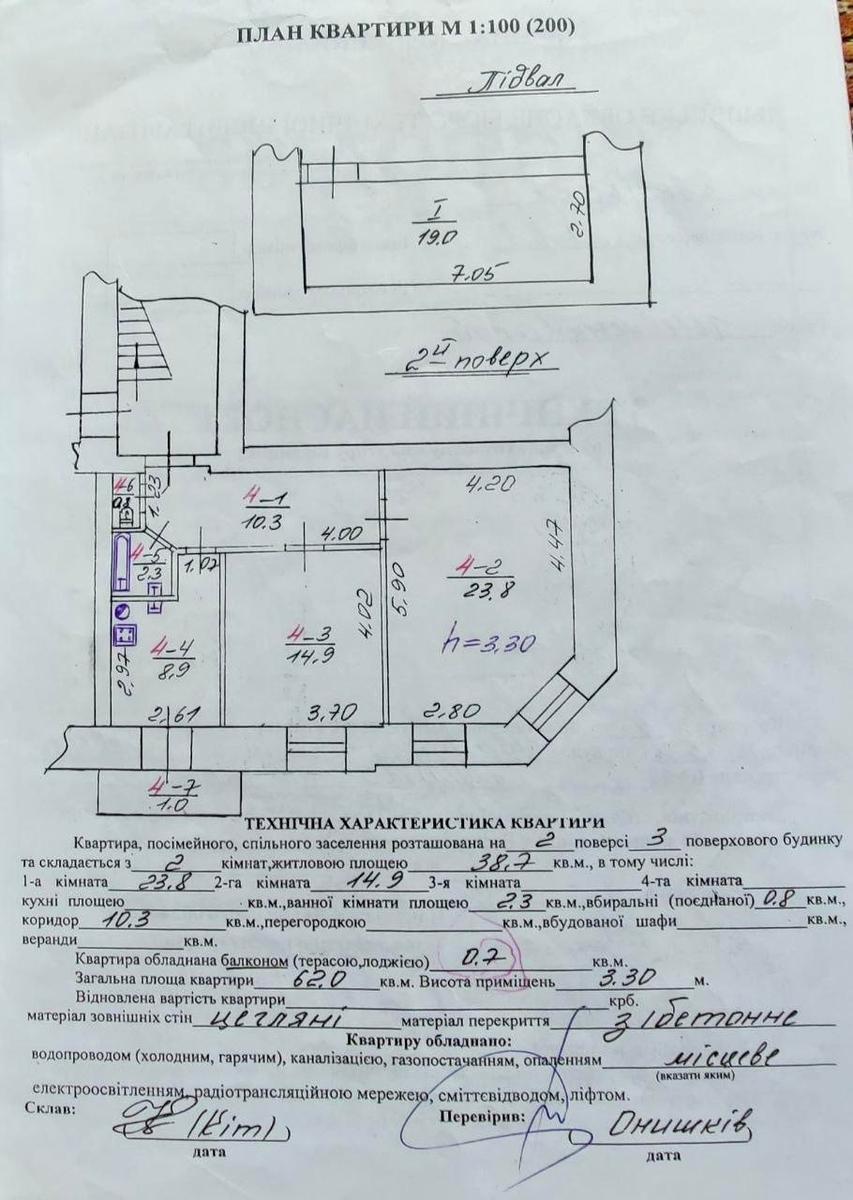 ПЛАН КВАРТИРИ М 1:100 (200)
Підвал
I
19.0
2.70
7.05
2й поверх
4-6
0.8
1.23
4-1
10.3
4.00
4.20
4-5
2.3
1.07
4-2
23.8
4.47
5.90
4.02
4-3
14.9
h=3.30
4-4
8.9
2.97
2.61
3.70
2.80
4-7
1.0
ТЕХНІЧНА ХАРАКТЕРИСТИКА КВАРТИРИ
Квартира, посімейного, спільного заселення розташована на 2 поверсі 3 поверхового будинку
та складається з 2 кімнат,житловою площею 38.7 кв.м., в тому числі:
1-а кімната 23.8 2-га кімната 14.9 3-я кімната 4-та кімната
кухні площею кв.м.,ванної кімнати площею 2.3 кв.м.,вбиральні (поєднаної) 0.8 кв.м.,
коридор 10.3 кв.м.,перегородкою кв.м.,вбудованої шафи кв.м.,
веранди кв.м.
Квартира обладнана балконом (терасою,лоджією) 0.7 кв.м.
Загальна площа квартири 62.0 кв.м. Висота приміщень 3.30 м.
Відновлена вартість квартири крб.
матеріал зовнішніх стін цегляні матеріал перекриття з/бетонне
Квартиру обладнано:
водопроводом (холодним, гарячим), каналізацією, газопостачанням, опаленням місцеве
(вказати яким)
електроосвітленням, радіотрансляційною мережею, сміттєвідводом, ліфтом.
Склав: (Кіт) Перевірив: Онишків
дата дата